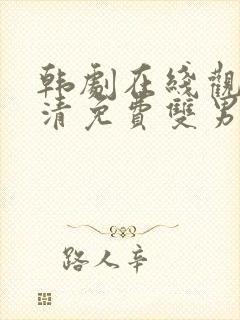 韩劇在綫觀
清免費雙男
路人辛